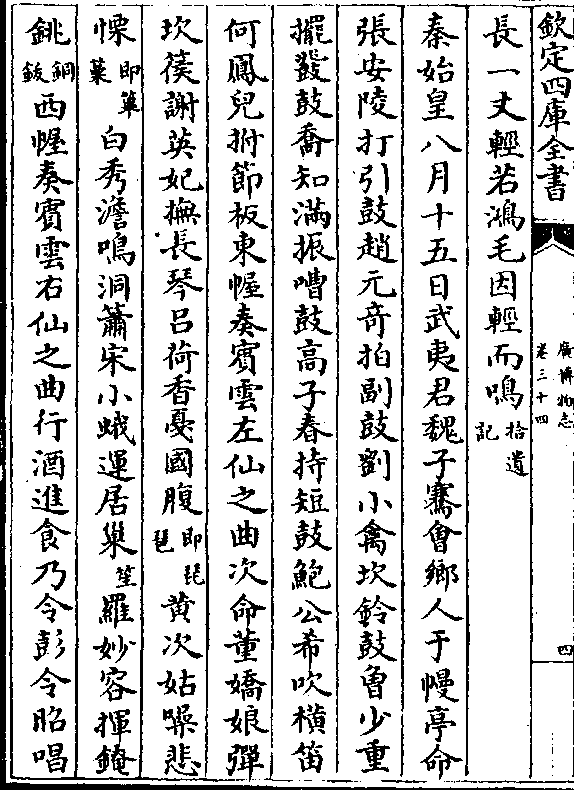 欽定四庫全書
廣博物志
卷三十四
四
長一丈輕若鴻毛因輕而鳴拾遺記
秦始皇八月十五日武夷君魏子騫會鄉人于幔亭命
張安陵打引鼓趙元竒拍副鼓劉小禽坎鈴鼓曾少重
擺鼗鼓喬知滿振嘈鼓高子春持短鼓鮑公希吹横笛
何鳳兒拊節板東幄奏賓雲左仙之曲次命董嬌娘彈
坎篌謝英妃撫長琴吕荷香戞國腹即琵琶黄次姑噪悲
慄即篳篥白秀澹鳴洞簫宋小蛾運居巢笙羅妙容揮㿌
銚銅鈸西幄奏賓雲右仙之曲行酒進食乃令彭令昭唱